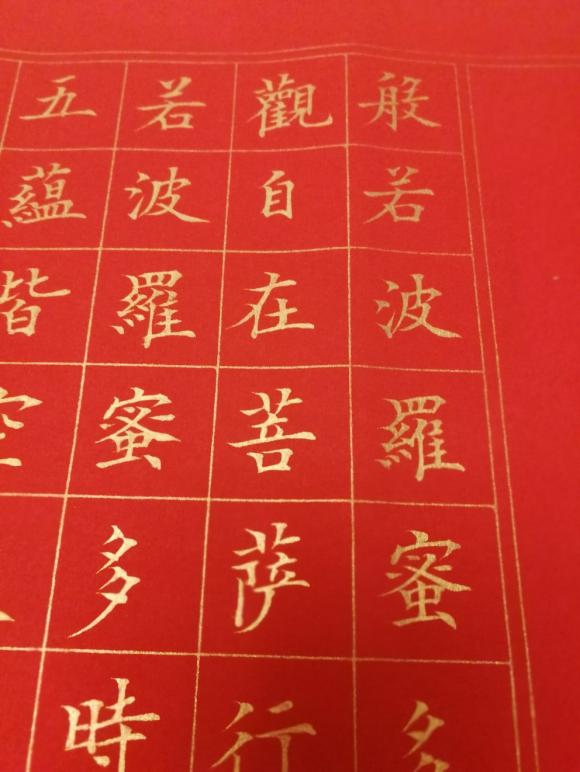 般若波羅蜜多
觀自在菩萨行
若波羅蜜多時
五蕴皆空